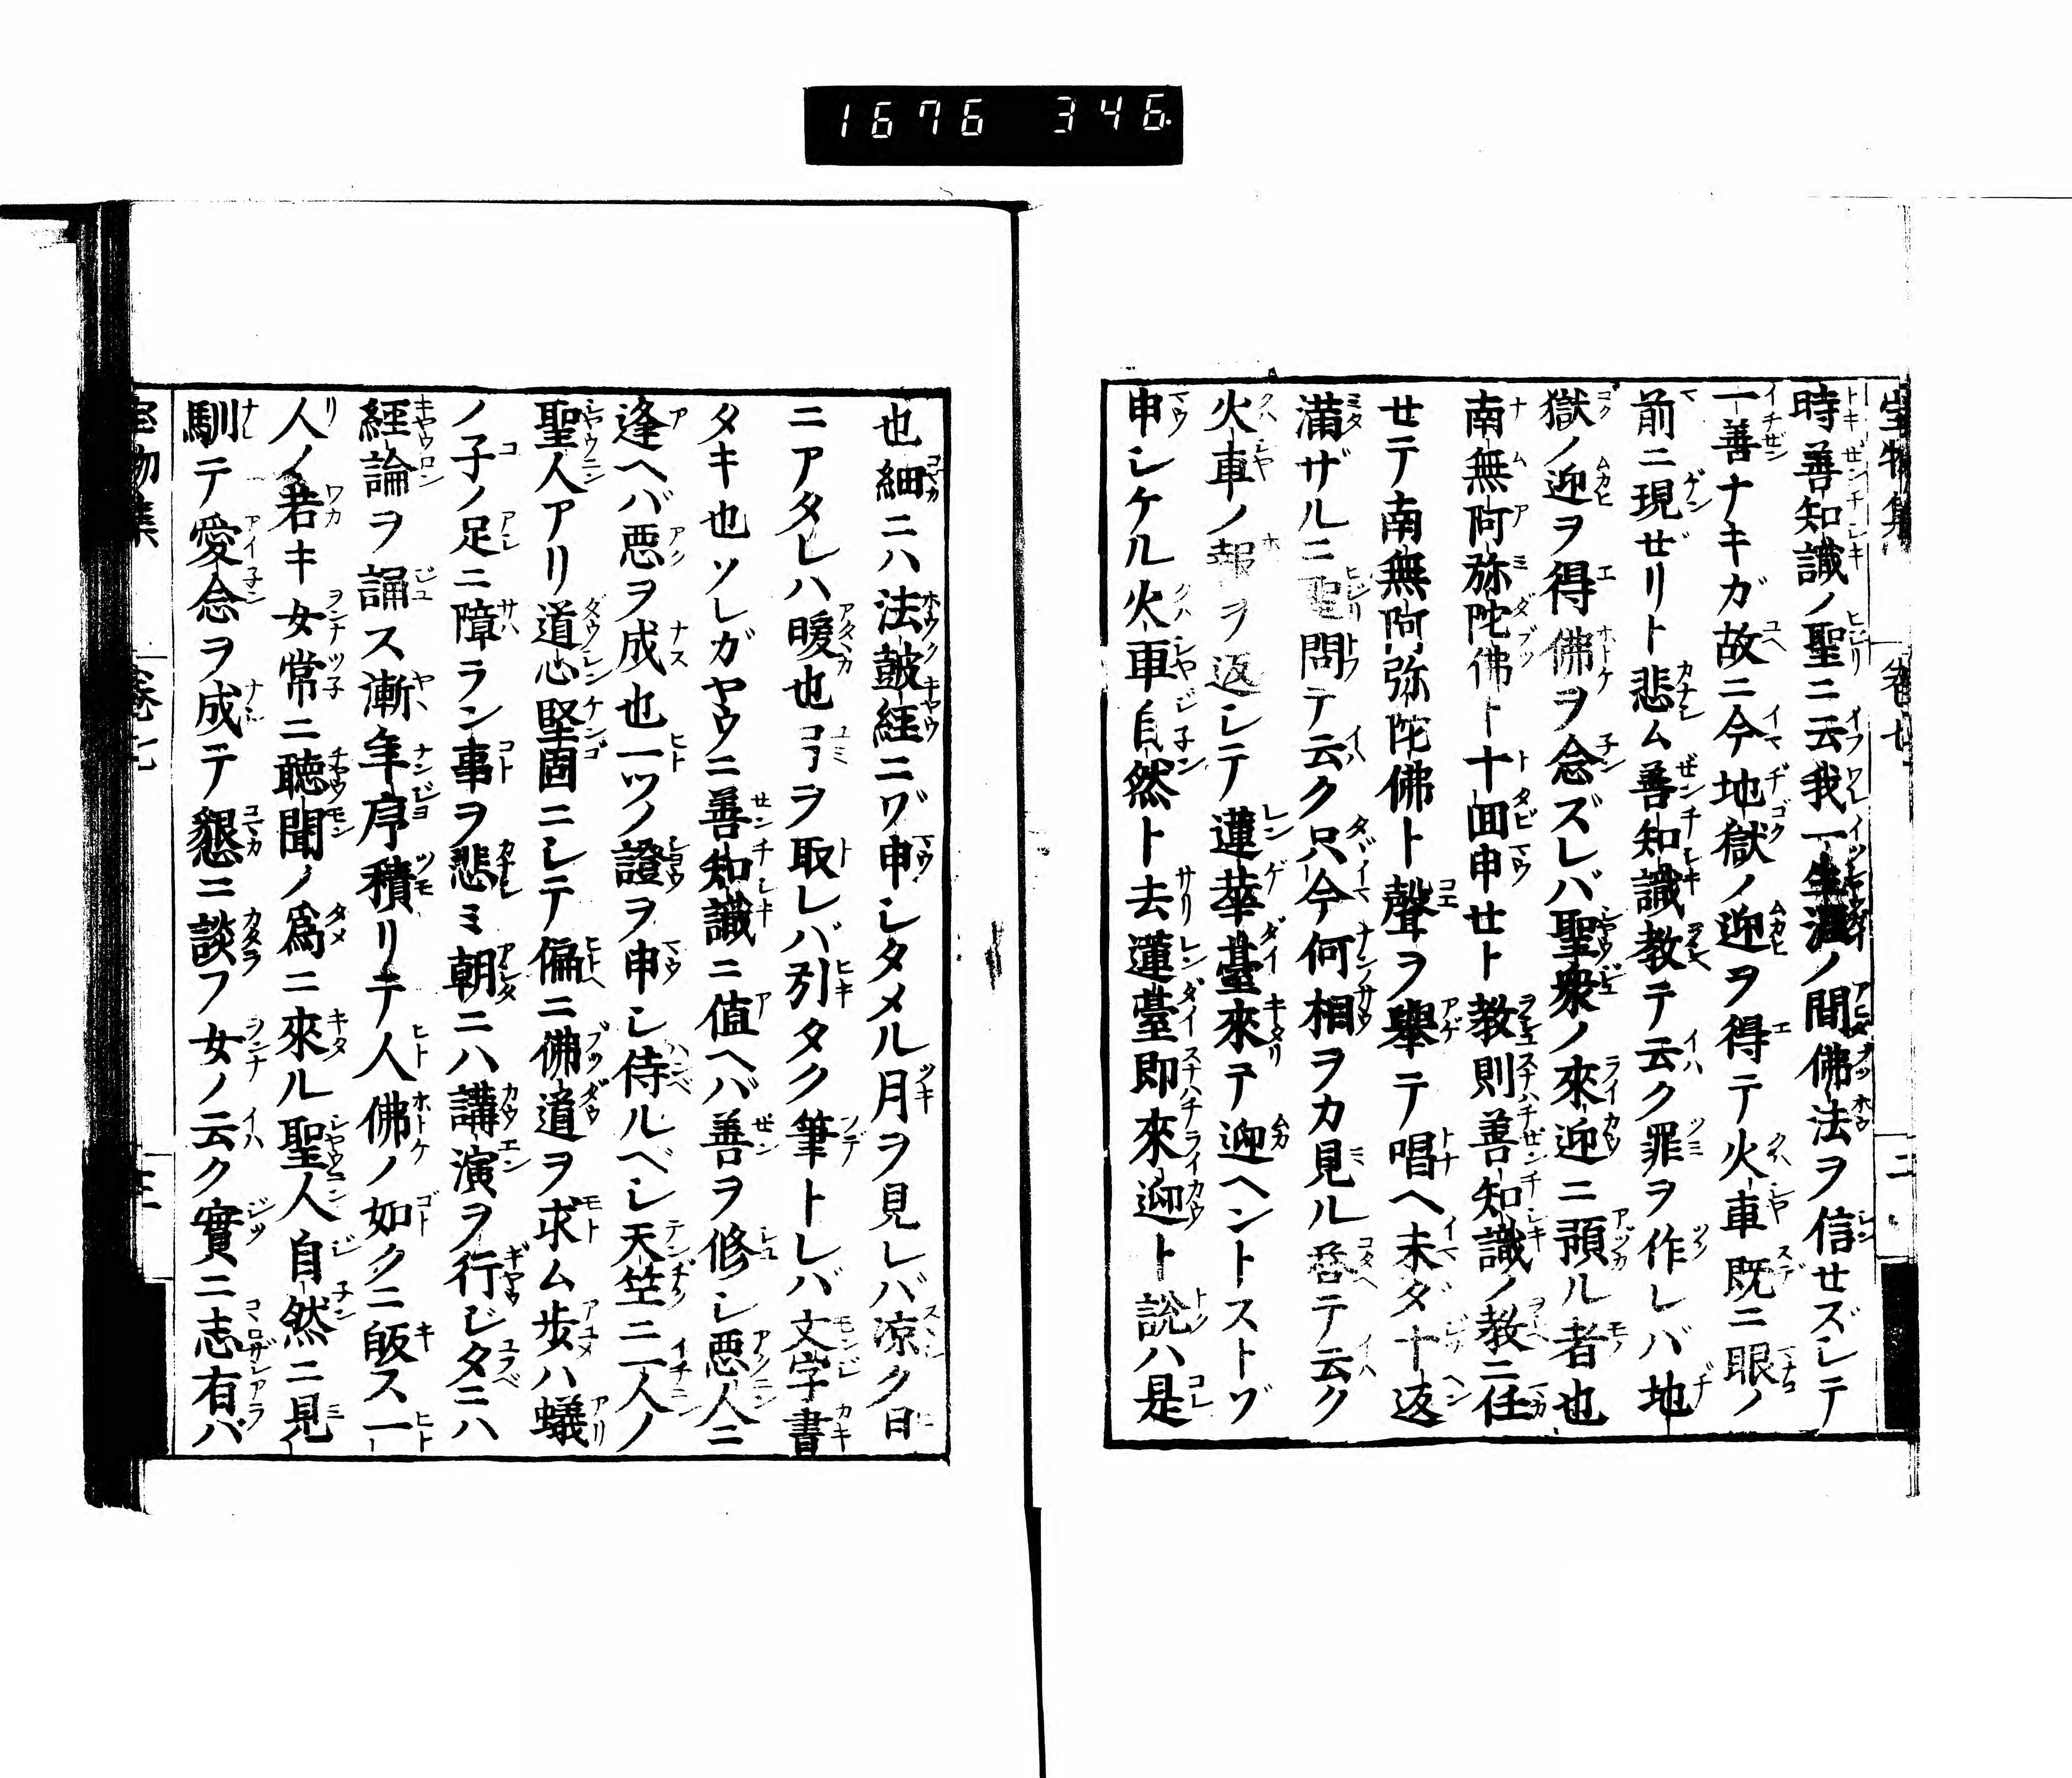 1676 346.
時善知識ノ聖ニ云我一生涯ノ間佛法ヲ信セズシテ
一善ナキガ故ニ今地獄ノ迎ヲ得テ火車既ニ眼ノ
前ニ現ぜリト悲ム善知識教テ云ク罪ヲ作レバ地
獄ノ迎ヲ得佛ヲ念ズレバ聖衆ノ來迎ニ預ル者也
南無阿弥陀佛ト十回申セト教則善知識ノ教ニ任
セテ南無阿弥陀佛ト聲ヲ舉テ唱ヘ未ダ十返
滿ザルニ聖問テ云ク只今何相ヲカ見ル答テ云ク
火車ノ報ヲ返シテ蓮華臺來テ迎ヘントストゾ
申シケル火車自然ト去蓮臺即來迎ト說ハ是
也細ニハ法皷經ニゾ申シタメル月ヲ見レバ凉ク日
ニアタレハ暖也弓ヲ取レバ引タク筆トレバ文字書
タキ也ソレガヤウニ善知識ニ値ヘバ善ヲ修シ悪人ニ
逢ヘバ悪ヲ成也一ツノ證ヲ申シ侍ルベシ天竺ニ一人ノ
聖人アリ道心堅固ニシテ偏ニ佛道ヲ求ム歩ハ蟻
ノ子ノ足ニ障ラン事ヲ悲ミ朝ニハ講演ヲ行ヒタニハ
經論ヲ誦ス漸年序積リテ人佛ノ如クニ皈ス一
人ノ若キ女常ニ聴聞ノ爲ニ來ル聖人自然ニ見
馴テ愛念ヲ成テ懇ニ談フ女ノ云ク實ニ志有バ